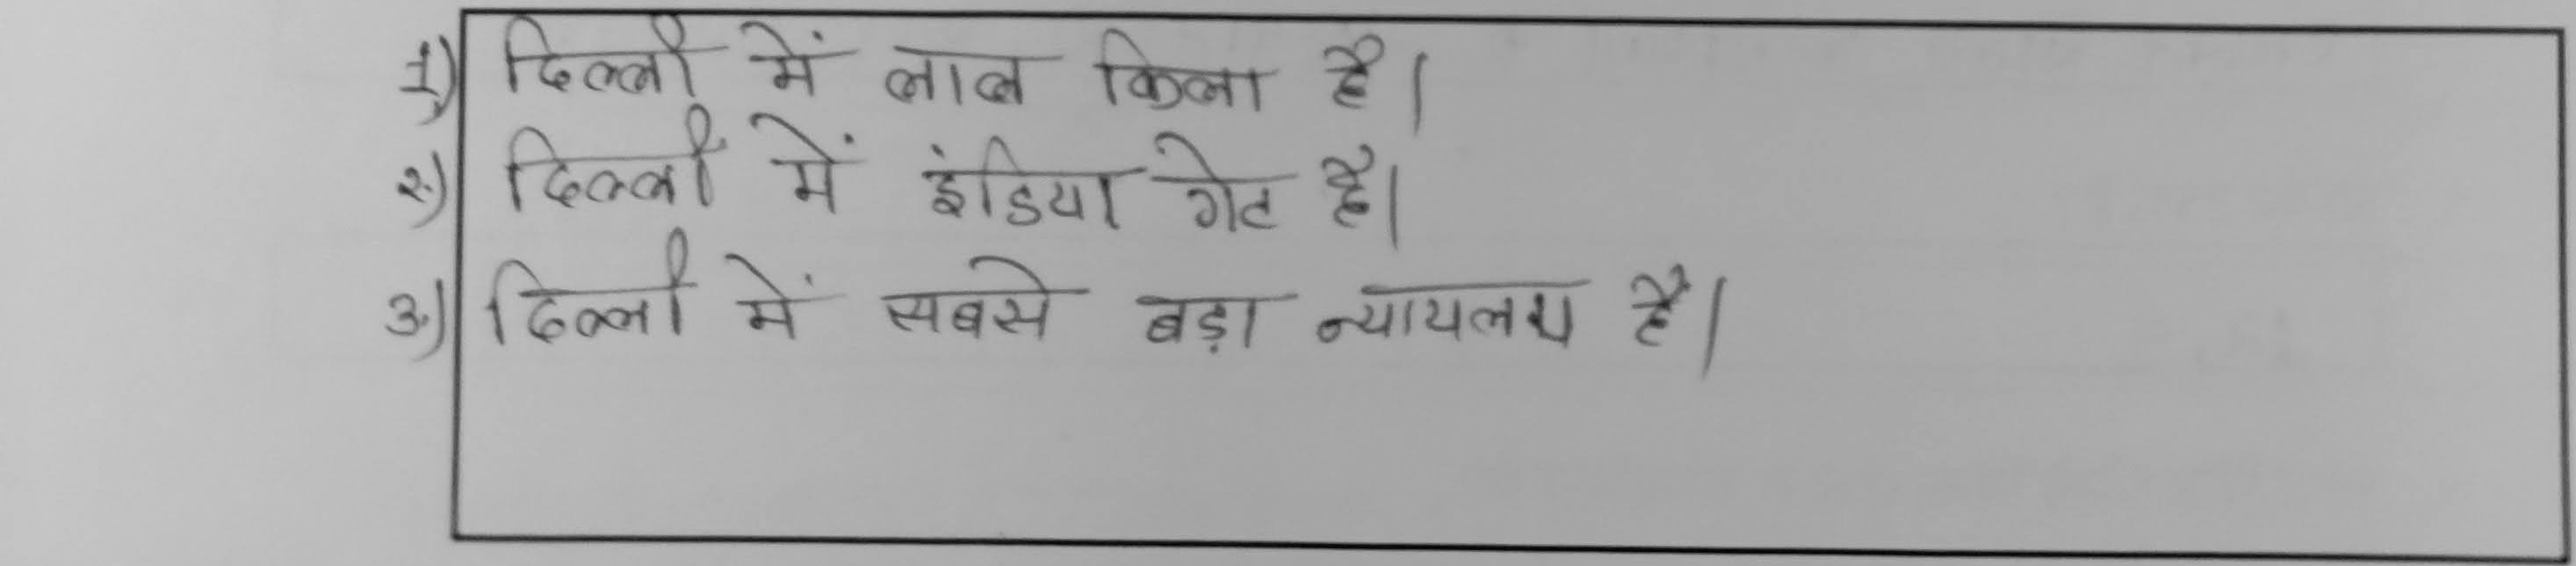 1) दिल्ली में लाल किला है।
2) दिल्ली में इंडिया गेट है।
3) दिल्ली में सबसे बड़ा न्यायलय है।